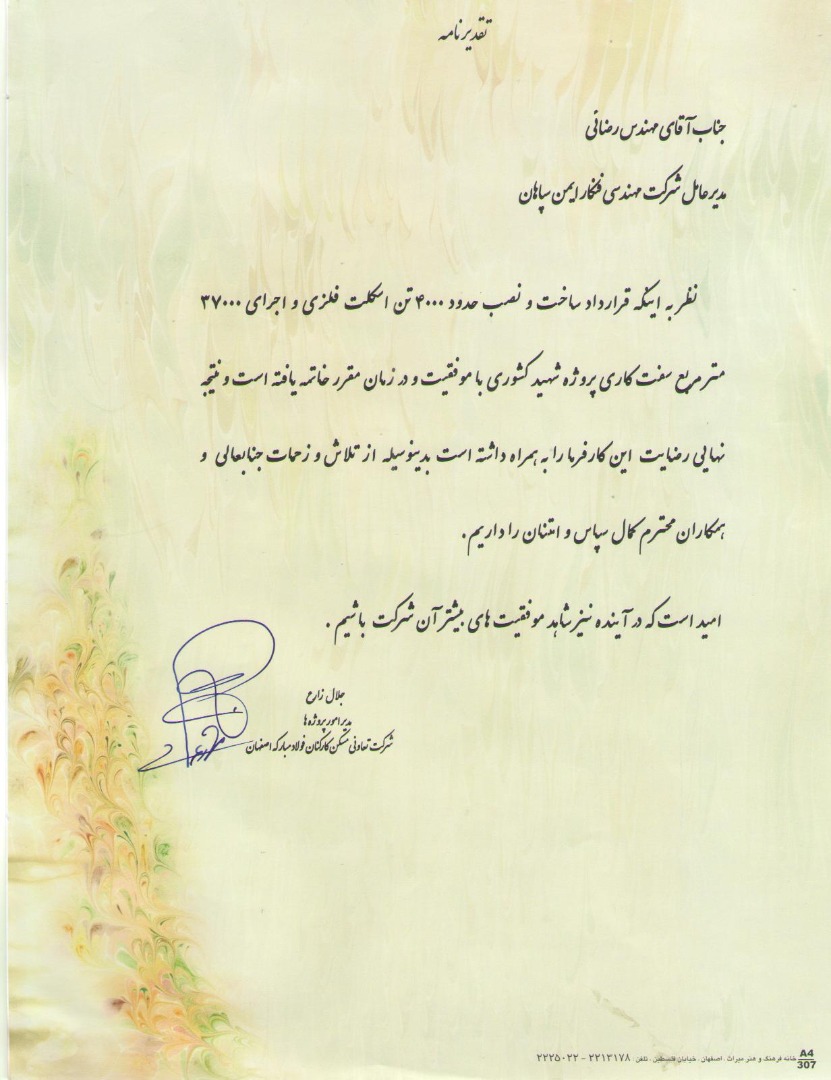 تقدیرنامه
جناب آقای مهندس رضائی
مدیرعامل شرکت مهندسی فنکار ایمن سپاهان
نظر به اینکه قرارداد ساخت و نصب حدود ۴۰۰۰ تن اسکلت فلزی و اجرای ۳۷۰۰۰
متر مربع سفت کاری پروژه شهید کشوری با موفقیت و در زمان مقرر خاتمه یافته است و نتیجه
نهایی رضایت این کارفرما را به همراه داشته است بدینوسیله از تلاش و زحمات جنابعالی و
همکاران محترم کمال سپاس و امتنان را داریم.
امید است که در آینده نیز شاهد موفقیت های بیشتر آن شرکت باشیم .
جلال زارع
مدیر امور پروژه ها
شرکت تعاونی مسکن کارکنان فولاد مبارکه اصفهان
A4
307
خانه فرهنگ و هنر میراث . اصفهان . خیابان فلسطین . تلفن ۲۲۱۳۱۷۸ - ۲۲۲۵۰۲۲